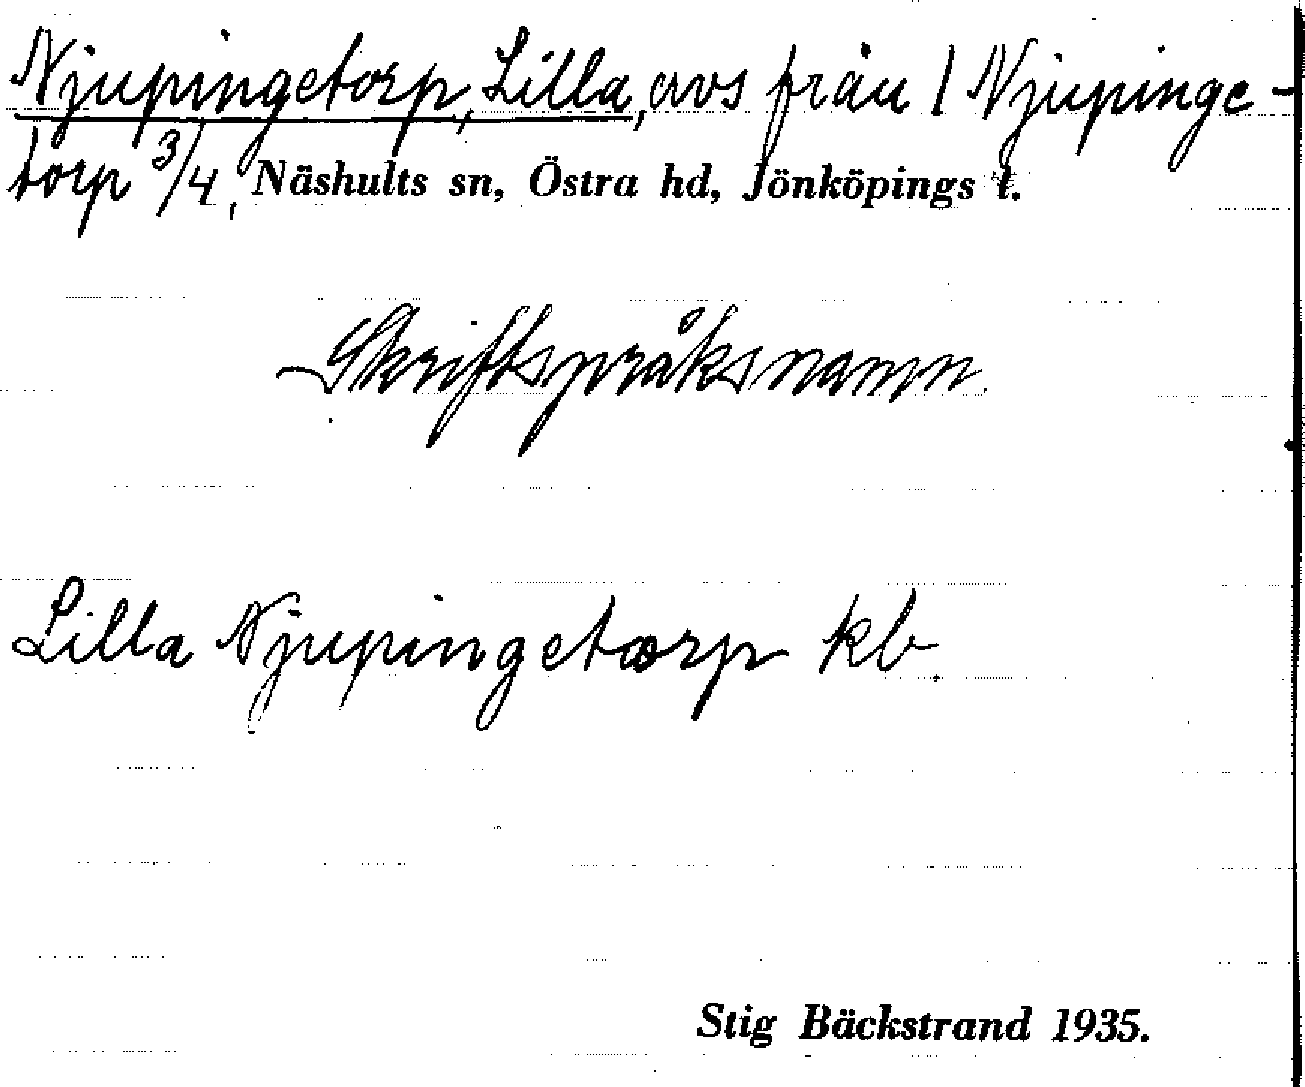 Njupingetorp, Lilla, avs från 1 Njupinge-
torp 3/4, Näshults sn, Östra hd, Jönköpings l.
Skriftspråksnamn
Lilla Njupingetorp kb.
Stig Bäckstrand 1935.